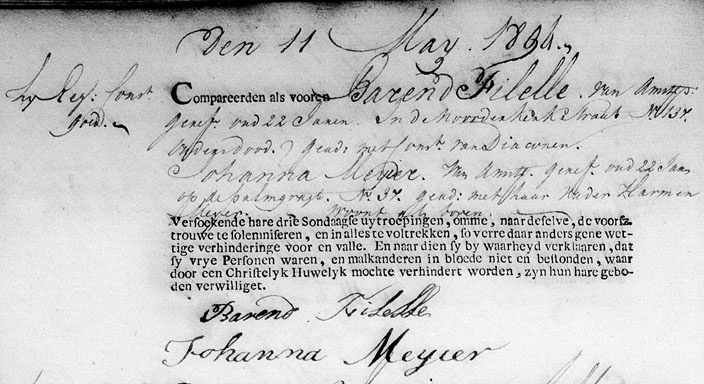 Den 11 May. 1804.
Compareerden als vooren Barend Filelle. van Amst:
geref. oud 22 Jaren. In de Noorderkerkstraat No 137.
Ouders dood. geads: met Const: van Diaconen.
Johanna Meyier. van Amst. geref. oud 22 Jaar
op de palmgragt. No. 37. geads: met haar Vader Harmen
Meyer. woont als boven.
Versoekende hare drie Sondaagse uytroepingen, omme, naar deselve, de voorsz
trouwe te solenniseren, en in alles te voltrekken, so verre daar anders gene wet-
tige verhinderinge voor en valle. En naar dien sy by waarheyd verklaaren, dat
sy vrye Personen waren, en malkanderen in bloede niet en bestonden, waar
door een Christelyk Huwelyk mochte verhindert worden, zyn hun hare gebo-
den verwilliget.
Barend Filelle
Johanna Meyier